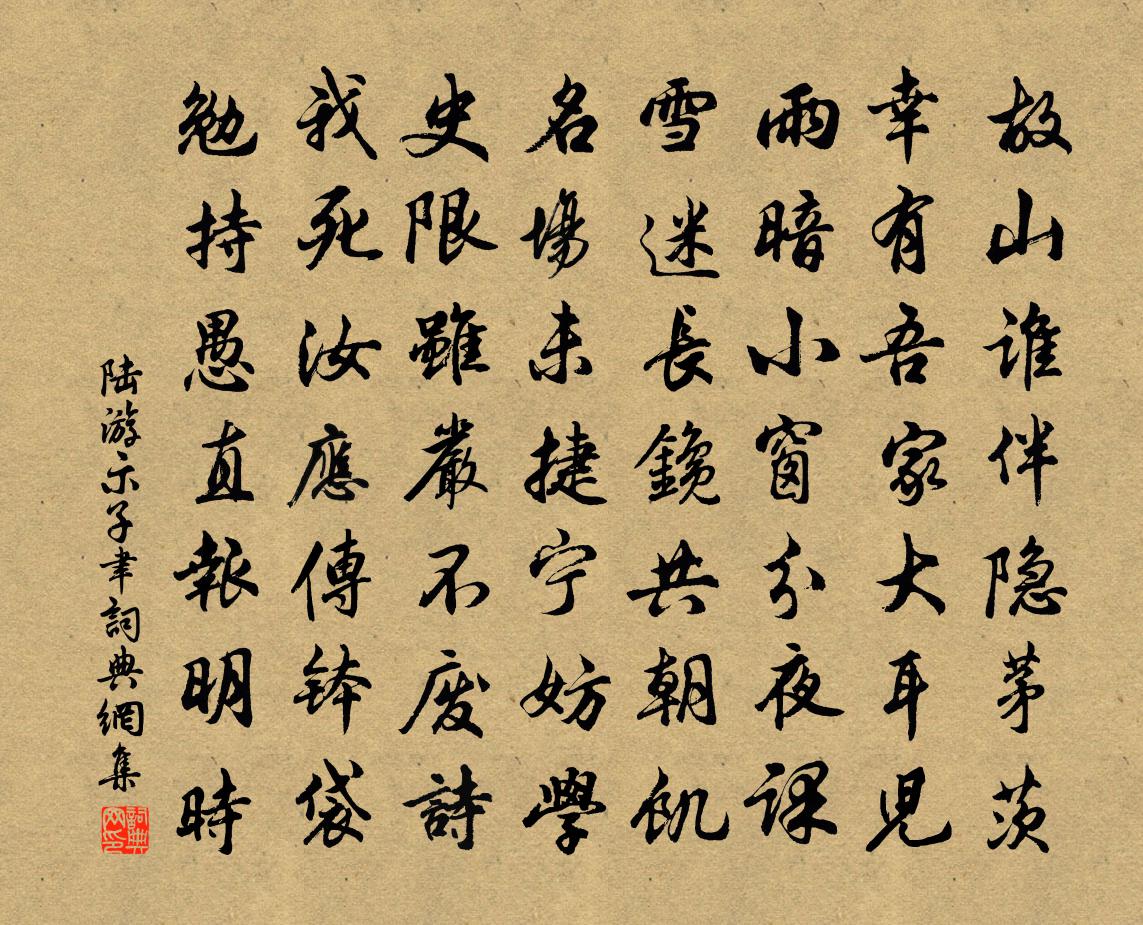 故山谁伴隐茅茨
幸有吾家大耳児
雨暗小窗分夜课
雪迷長鑱共朝飢
名場未捷宁妨學
史限雖嚴不废詩
我死汝應傳钵袋
勉持愚直報明時
陆游示子聿詞典網集
詞典网印